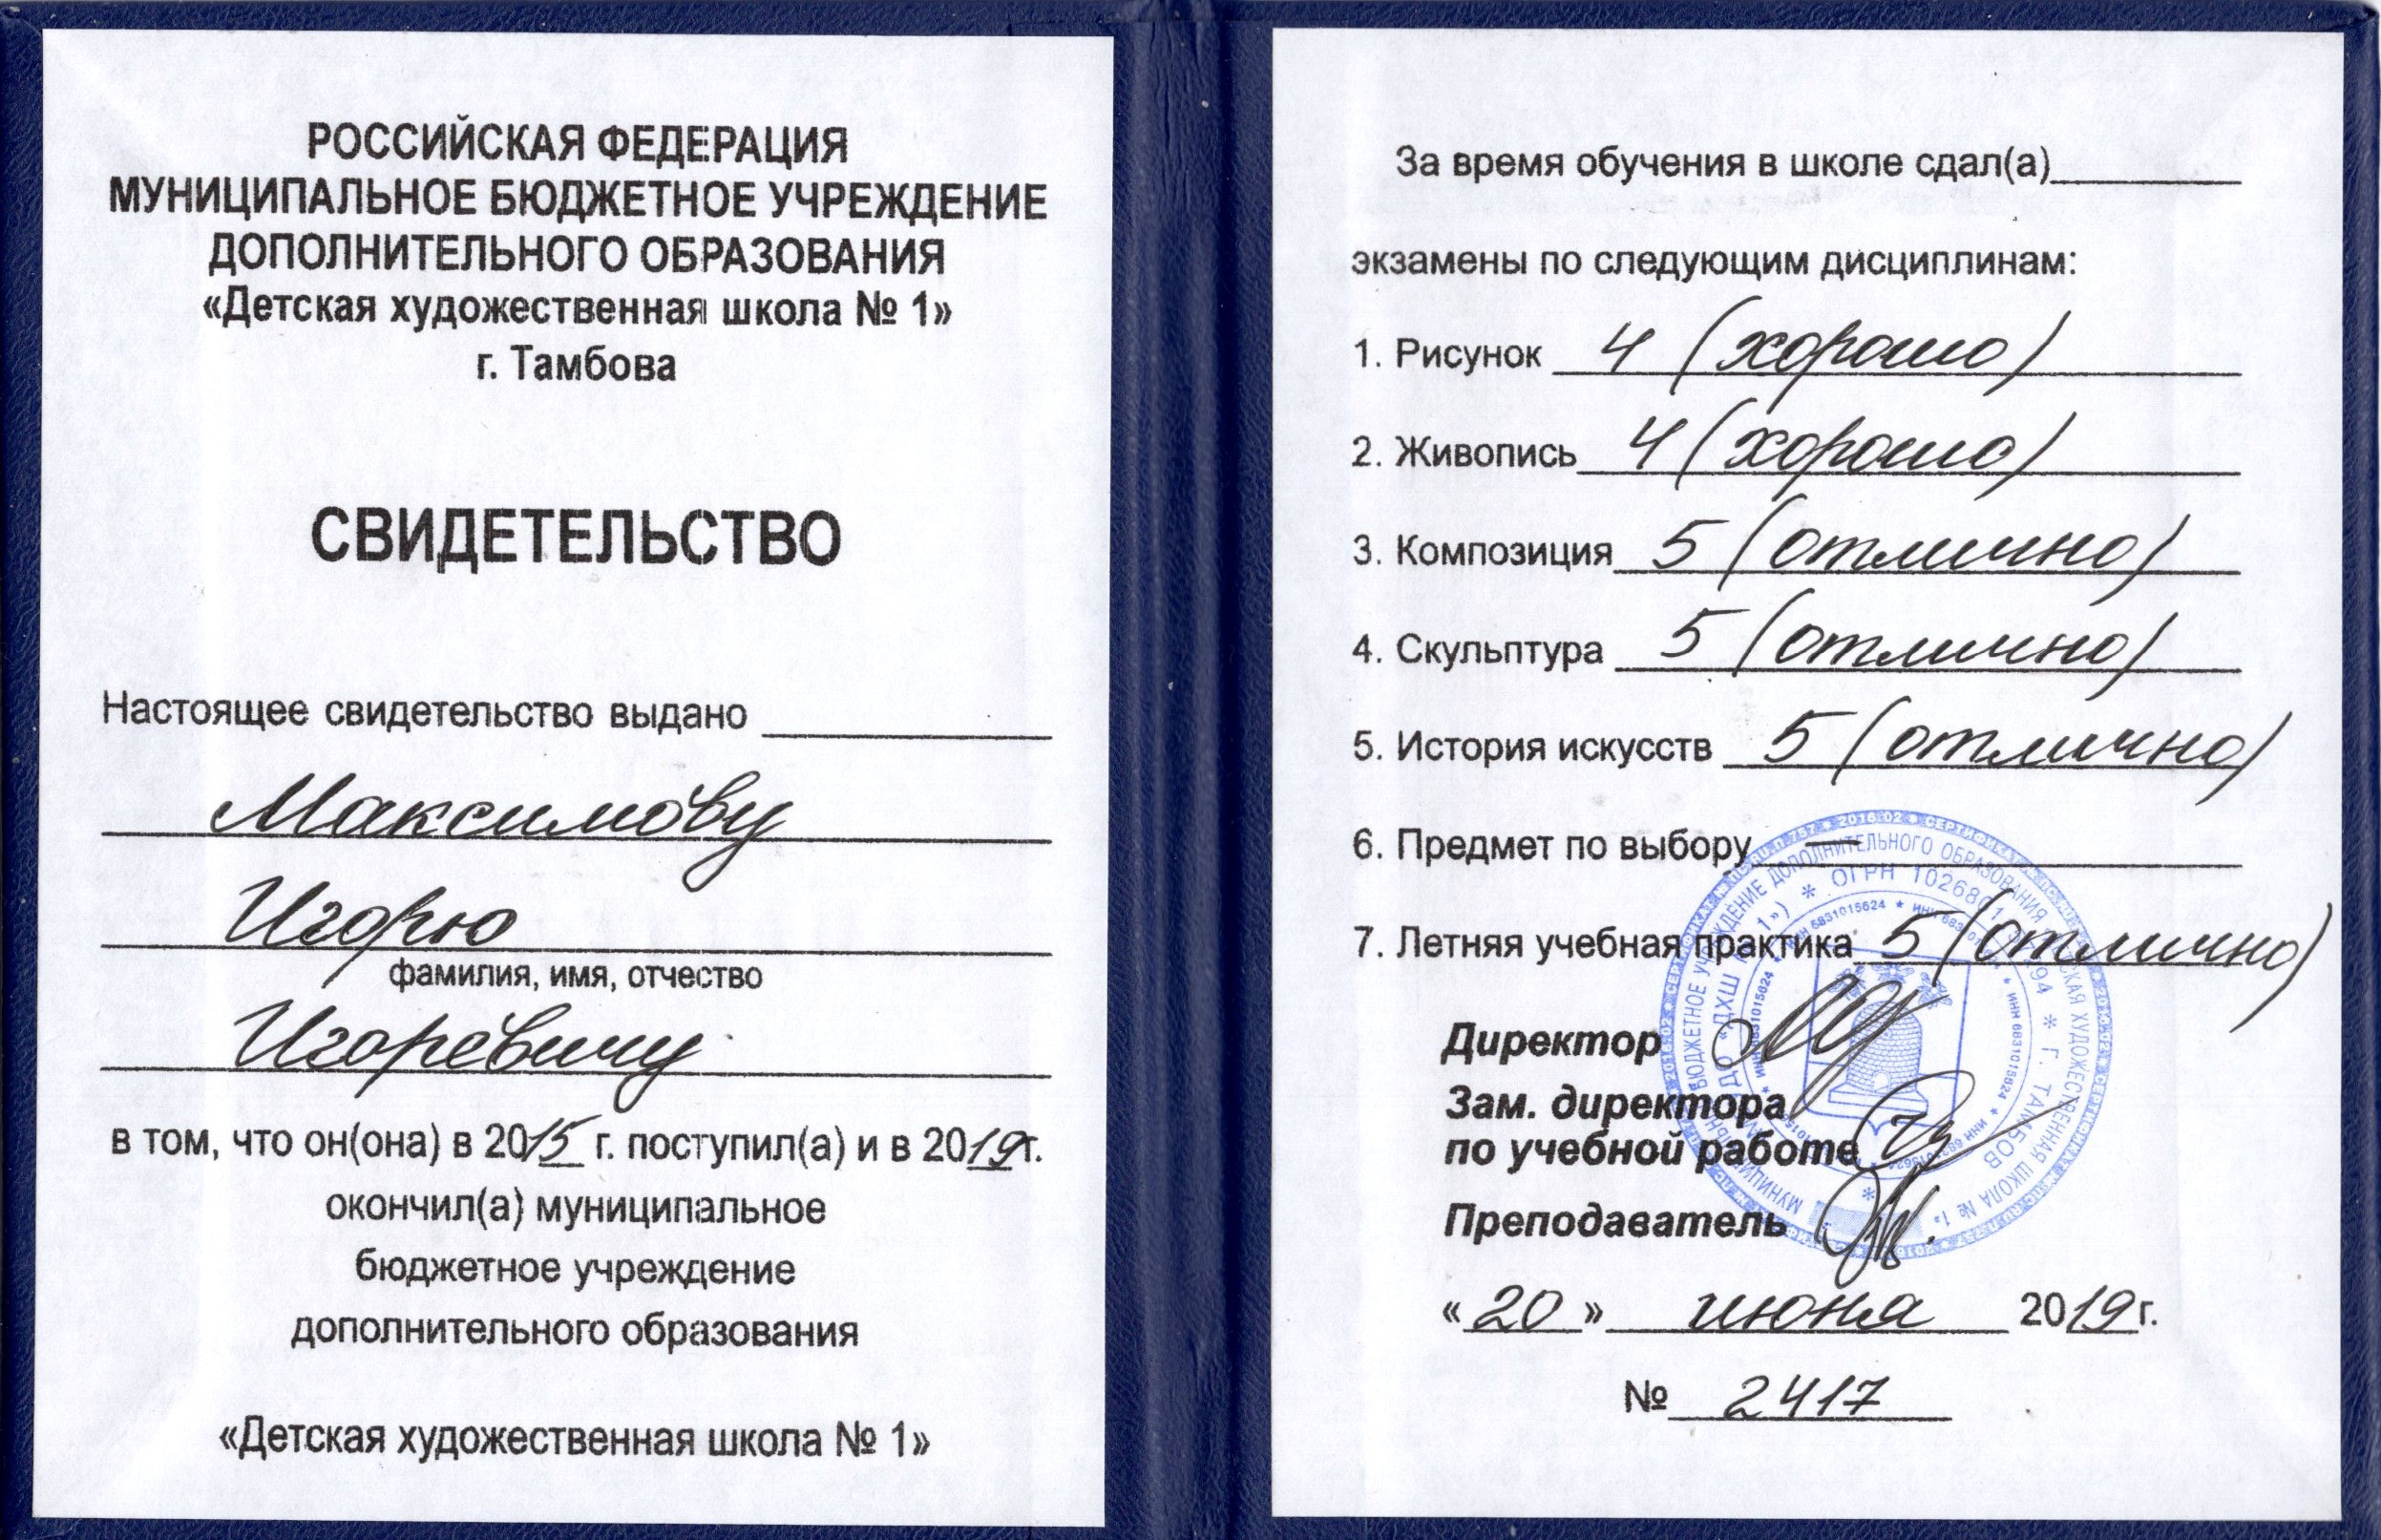 РОССИЙСКАЯ ФЕДЕРАЦИЯ
МУНИЦИПАЛЬНОЕ БЮДЖЕТНОЕ УЧРЕЖДЕНИЕ
ДОПОЛНИТЕЛЬНОГО ОБРАЗОВАНИЯ
«Детская художественная школа № 1»
г. Тамбова
СВИДЕТЕЛЬСТВО
Настоящее свидетельство выдано
Максимову
Игорю
фамилия, имя, отчество
Игоревичу
в том, что он(она) в 2015 г. поступил(а) и в 2019г.
окончил(а) муниципальное
бюджетное учреждение
дополнительного образования
«Детская художественная школа № 1»
За время обучения в школе сдал(а)
экзамены по следующим дисциплинам:
1. Рисунок 4 (хорошо)
2. Живопись 4 (хорошо)
3. Композиция 5 (отлично)
4. Скульптура 5 (отлично)
5. История искусств 5 (отлично)
6. Предмет по выбору —
7. Летняя учебная практика 5 (отлично)
Директор
Зам. директора
по учебной работе
Преподаватель
«20» июня 2019г.
№ 2417